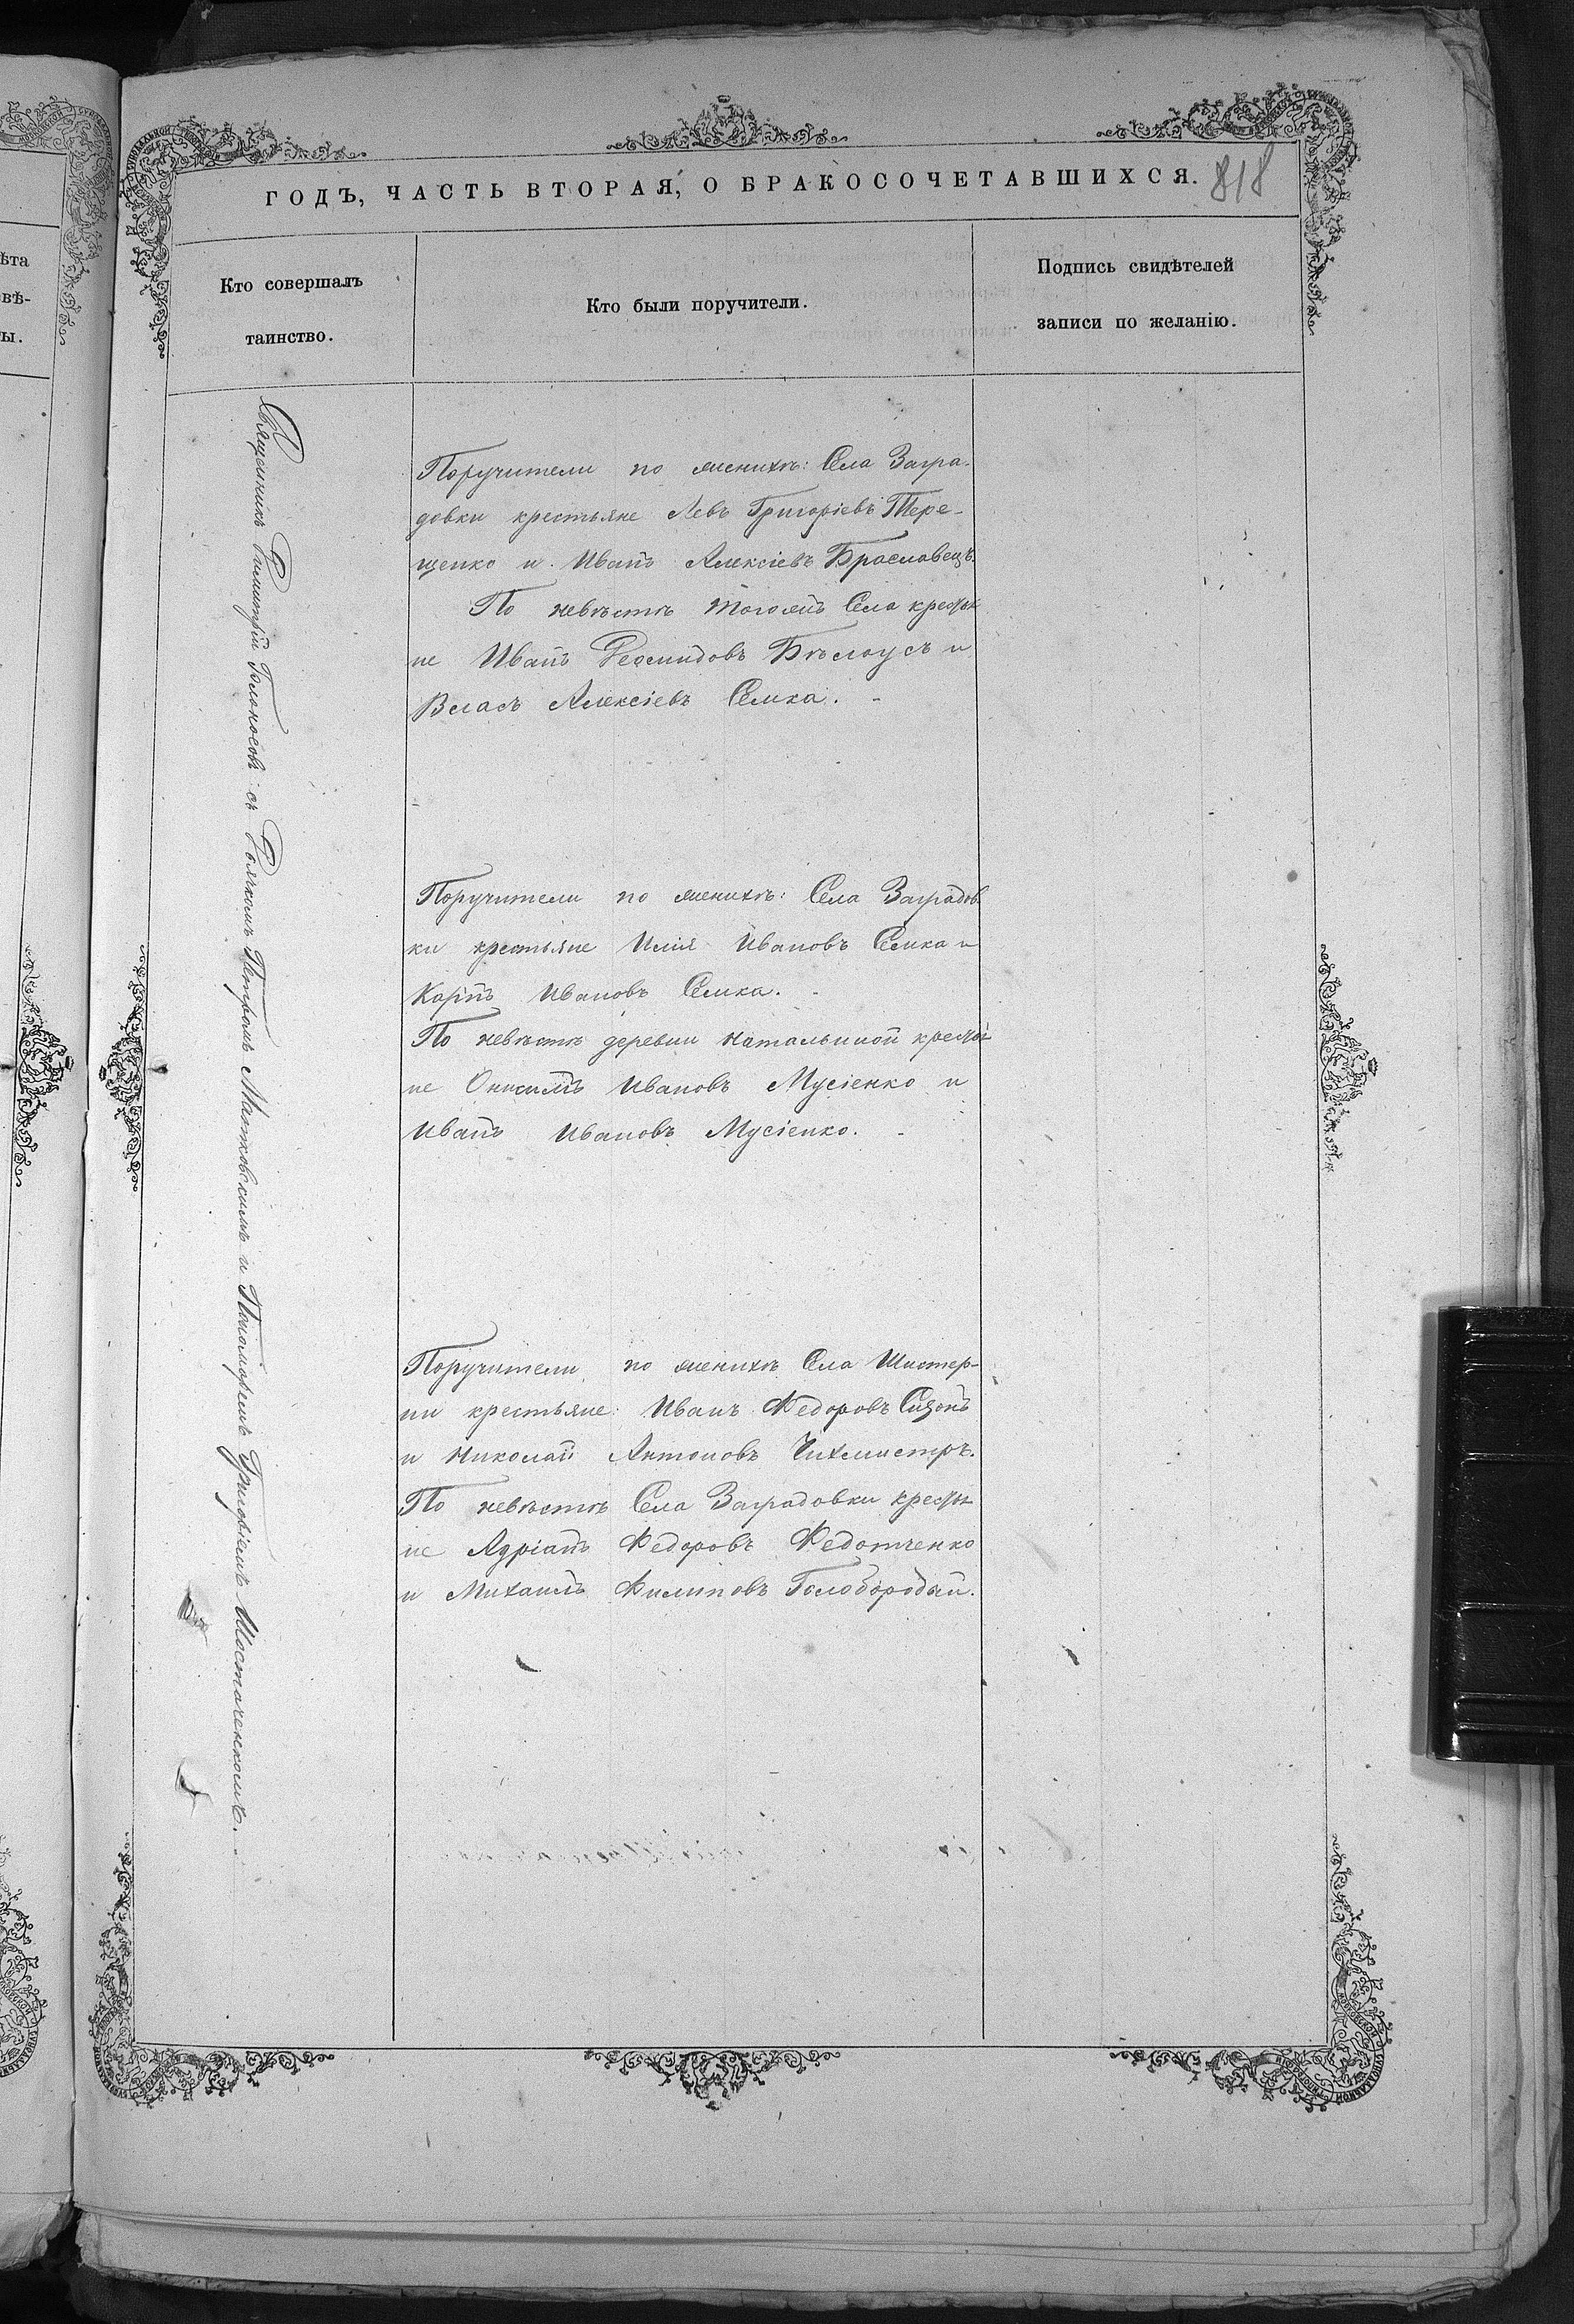 ГОДЪ, ЧАСТЬ ВТОРАЯ, О БРАКОСОЧЕТАВШИХСЯ.
818
Кто совершалъ
таинство.
Кто были поручители.
Подпись свидѣтелей
записи по желанію.
Священникъ Димитрій Голоносовъ съ Дьячкомъ Петромъ Матковскимъ и Пономаремъ Григоріемъ Шостаченкомъ.
Поручители по женихѣ: Села Загра-
довки крестьяне Левъ Григоріевъ Тере-
щенко и Иванъ Алексіевъ Браславецъ.
По невѣстѣ тогожъ Села крестья
не Иванъ Демидовъ Бѣлоусъ и
Власъ Алексіевъ Семка.
Поручители по женихѣ: Села Заградов
ки крестьяне Илія Ивановъ Семка и
Карпъ Ивановъ Семка.
По невѣстѣ деревни Натальиной крестья
не Онисимъ Ивановъ Мусіенко и
Иванъ Ивановъ Мусіенко.
Поручители по женихѣ Села Шистер-
ни крестьяне: Иванъ Федоровъ
и Николай Антоновъ Чихмистръ.
По невѣстѣ Села Заградовки крестья
не Адріанъ Федоровъ Федотченко
и Михаилъ Филиповъ Голобородый.
ѣта
вѣ-
ы.